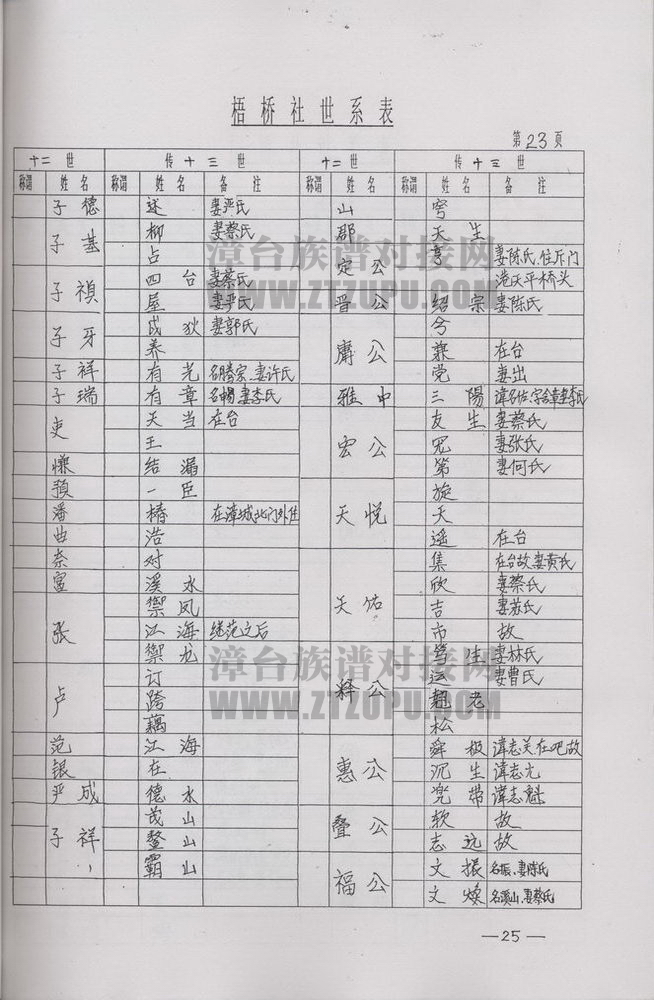 梧桥社世系表
第23页
十二世 传十三世 十二世 传十三世
称谓 姓名 称谓 姓名 备注 称谓 姓名 称谓 姓名 备注
子德 述 妻严氏 山 穹
子基 柳 妻蔡氏 郡 天生
占 定公 亨 妻陈氏,住斥门
子禎 四台 妻蔡氏 港天平桥头
屋 妻严氏 晋公 绍宗 妻陈氏
子牙 戍狄 妻郭氏 庸公 兮
养 兼 在台
子祥 有光 名腾宗,妻许氏 党 妻出
子瑞 有章 名暢,妻李氏 雅中 三陽
吏 天当 在台 宏公 友生 妻蔡氏
王 妻张氏
慊 结漏 第 妻何氏
預 一臣 天悦 旋
潘 椿 在漳城北门外住 天
曲 浩 遥 在台
奈 对 天佑 集 在台故,妻黄氏
富 溪水 欣 妻蔡氏
张 禦凤 吉 妻苏氏
江海 继范之后 市 故
禦龙 释公 笃生 妻林氏
卢 订 运 妻曹氏
跨 翘老
藕 松
范 江海 惠公 舜极 諱志关,在吧故
银 在 沉生 諱志尤
尹成 德水 兜带 諱志魁
子祥 茂山 叠公 軟 故
鳌山 志远 故
霸山 福公 文振 名振,妻陈氏
文焕 名溪山,妻蔡氏
—25—
漳台族谱对接网
WWW.ZTZUPU.COM
漳台族谱对接网
WWW.ZTZUPU.COM